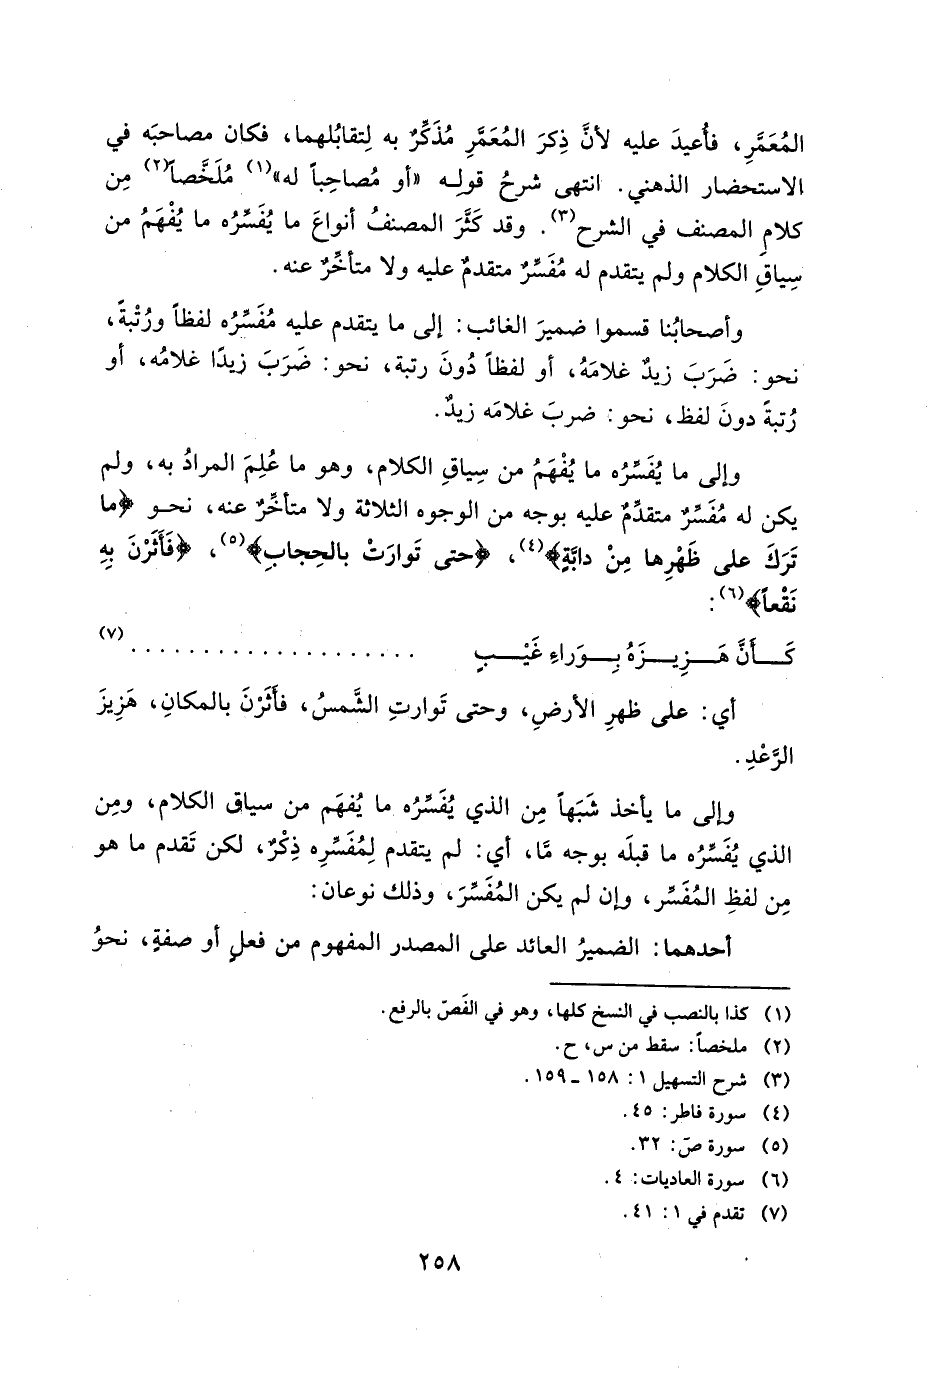 المُعَمَّرِ، فأُعيدَ عليه لأنَّ ذِكرَ المُعَمَّرِ مُذَكِّرٌ به لِتقابُلهما، فكان مصاحبَه في
الاستحضار الذهني. انتهى شرحُ قولـه «أو مُصاحِباً له»(١) مُلَخَّصاً(٢) مِن
كلامِ المصنف في الشرح(٣). وقد كَثَّرَ المصنفُ أنواعَ ما يُفَسِّرُه ما يُفْهَمُ من
سِياقِ الكلام ولم يتقدم له مُفَسِّرٌ متقدمٌ عليه ولا متأخِّرٌ عنه.
وأصحابُنا قسموا ضميرَ الغائب: إلى ما يتقدم عليه مُفَسِّرُه لفظاً ورُتْبةً،
نحو: ضَرَبَ زيدٌ غلامَهُ، أو لفظاً دُونَ رتبة، نحو: ضَرَبَ زيدًا غلامُه، أو
رُتبةً دونَ لفظ، نحو: ضربَ غلامَه زيدٌ.
وإلى ما يُفَسِّرُه ما يُفْهَمُ من سِياقِ الكلام، وهو ما عُلِمَ المرادُ به، ولم
يكن له مُفَسِّرٌ متقدِّمٌ عليه بوجه من الوجوه الثلاثة ولا متأخِّرٌ عنه، نحـو ﴿ما
تَرَكَ على ظَهْرِها مِنْ دابَّةٍ﴾(٤)، ﴿حتى تَوارَتْ بالحِجابِ﴾(٥)، ﴿فَأَثَرْنَ بِهِ
نَقْعاً﴾(٦):
كَـــأَنَّ هَـــزِيـــزَهُ بِـــوَراءِ غَيْـــبٍ . . . . . . . . . . . . . . . . . . . .(٧)
أي: على ظهرِ الأرضِ، وحتى تَوارتِ الشَّمسُ، فأَثَرْنَ بالمكانِ، هَزِيزَ
الرَّعْدِ.
وإلى ما يأخذ شَبَهاً مِن الذي يُفَسِّرُه ما يُفهَم من سياق الكلام، ومِن
الذي يُفَسِّرُه ما قبلَه بوجه مَّا، أي: لم يتقدم لِمُفَسِّرِه ذِكْرٌ، لكن تَقدم ما هو
مِن لفظِ المُفَسِّر، وإن لم يكن المُفَسِّرَ، وذلك نوعان:
أحدهما: الضميرُ العائد على المصدر المفهوم من فعلٍ أو صفةٍ، نحوُ
(١) كذا بالنصب في النسخ كلها، وهو في الفَصّ بالرفع.
(٢) ملخصاً: سقط من س، ح.
(٣) شرح التسهيل ١: ١٥٨ ـ ١٥٩.
(٤) سورة فاطر: ٤٥.
(٥) سورة صَ: ٣٢.
(٦) سورة العاديات: ٤.
(٧) تقدم في ١: ٤١.
٢٥٨